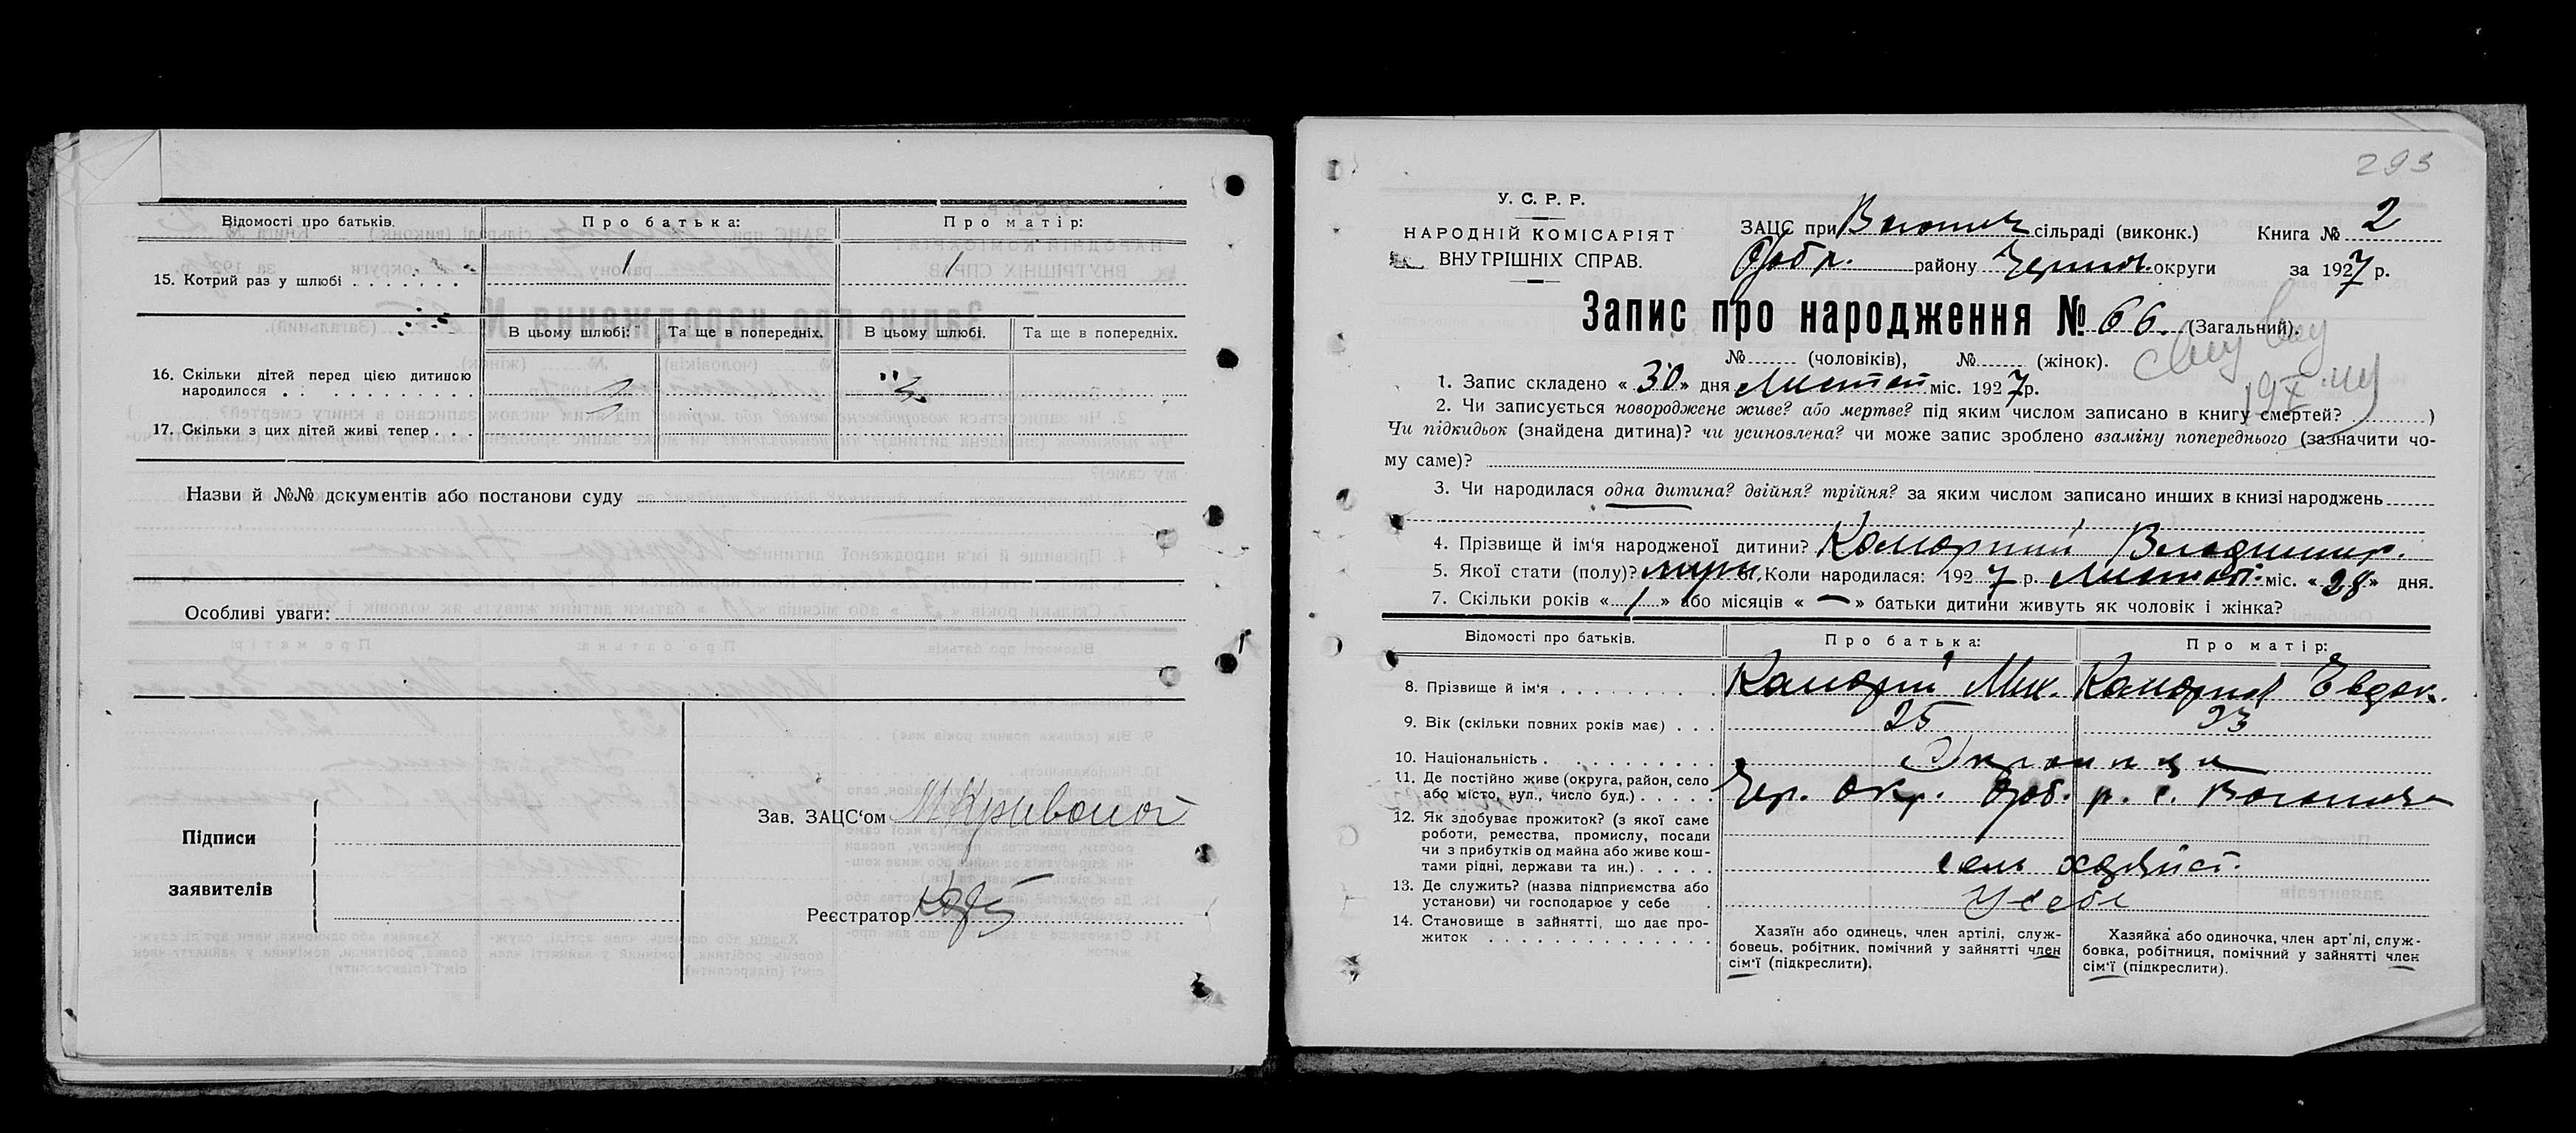 Відомості про батьків.
Про батька:
Про матір:
15. Котрий раз у шлюбі
1
1
В цьому шлюбі:
Та ще в попередніх.
В цьому шлюбі.
Та ще в попередніх.
16. Скільки дітей перед цією дитиною
народилося
17. Скільки з цих дітей живі тепер
Назви й №№ документів або постанови суду
Особливі уваги:
Підписи
заявителів
Зав. ЗАЦС'ом
Реєстратор
293
У. С. Р. Р.
НАРОДНІЙ КОМІСАРІЯТ
ВНУТРІШНІХ СПРАВ.
ЗАЦС при сільраді (виконк.) Книга № 2
району округи за 1927 р.
Запис про народження № 66. (Загальний).
№ (чоловіків), № (жінок).
1. Запис складено « 30 » дня Листоп міс. 1927 р.
2. Чи записується новороджене живе? або мертве? під яким числом записано в книгу смертей? )
Чи підкидьок (знайдена дитина)? чи усиновлена? чи може запис зроблено взаміну попереднього (зазначити чо-
му саме)?
3. Чи народилася одна дитина? двійня? трійня? за яким числом записано инших в книзі народжень
4. Прізвище й ім'я народженої дитини? Коморний Владимир.
5. Якої стати (полу)? муж 6. Коли народилася: 1927 р. Листоп. міс. « 28 » дня.
7. Скільки років « 1 » або місяців « — » батьки дитини живуть як чоловік і жінка?
Відомості про батьків.
Про батька:
Про матір:
8. Прізвище й ім'я
Мик.
Евдок.
9. Вік (скільки повних років має)
25
23
10. Національність
Українци
11. Де постійно живе (округа, район, село
або місто, вул., число буд.)
Чер. окр. р. с.
12. Як здобуває прожиток? (з якої саме
роботи, ремества, промислу, посади
чи з прибутків од майна або живе кош-
тами рідні, держави та ин.)
сель хозяйст.
13. Де служить? (назва підприємства або
установи) чи господарює у себе
У себе
14. Становище в зайнятті, що дає про-
житок
Хазяїн або одинець, член артілі, служ-
бовець, робітник, помічний у зайнятті член
сім'ї (підкреслити).
Хазяйка або одиночка, член арт'лі, служ-
бовка, робітниця, помічний у зайнятті член
сім'ї (підкреслити).